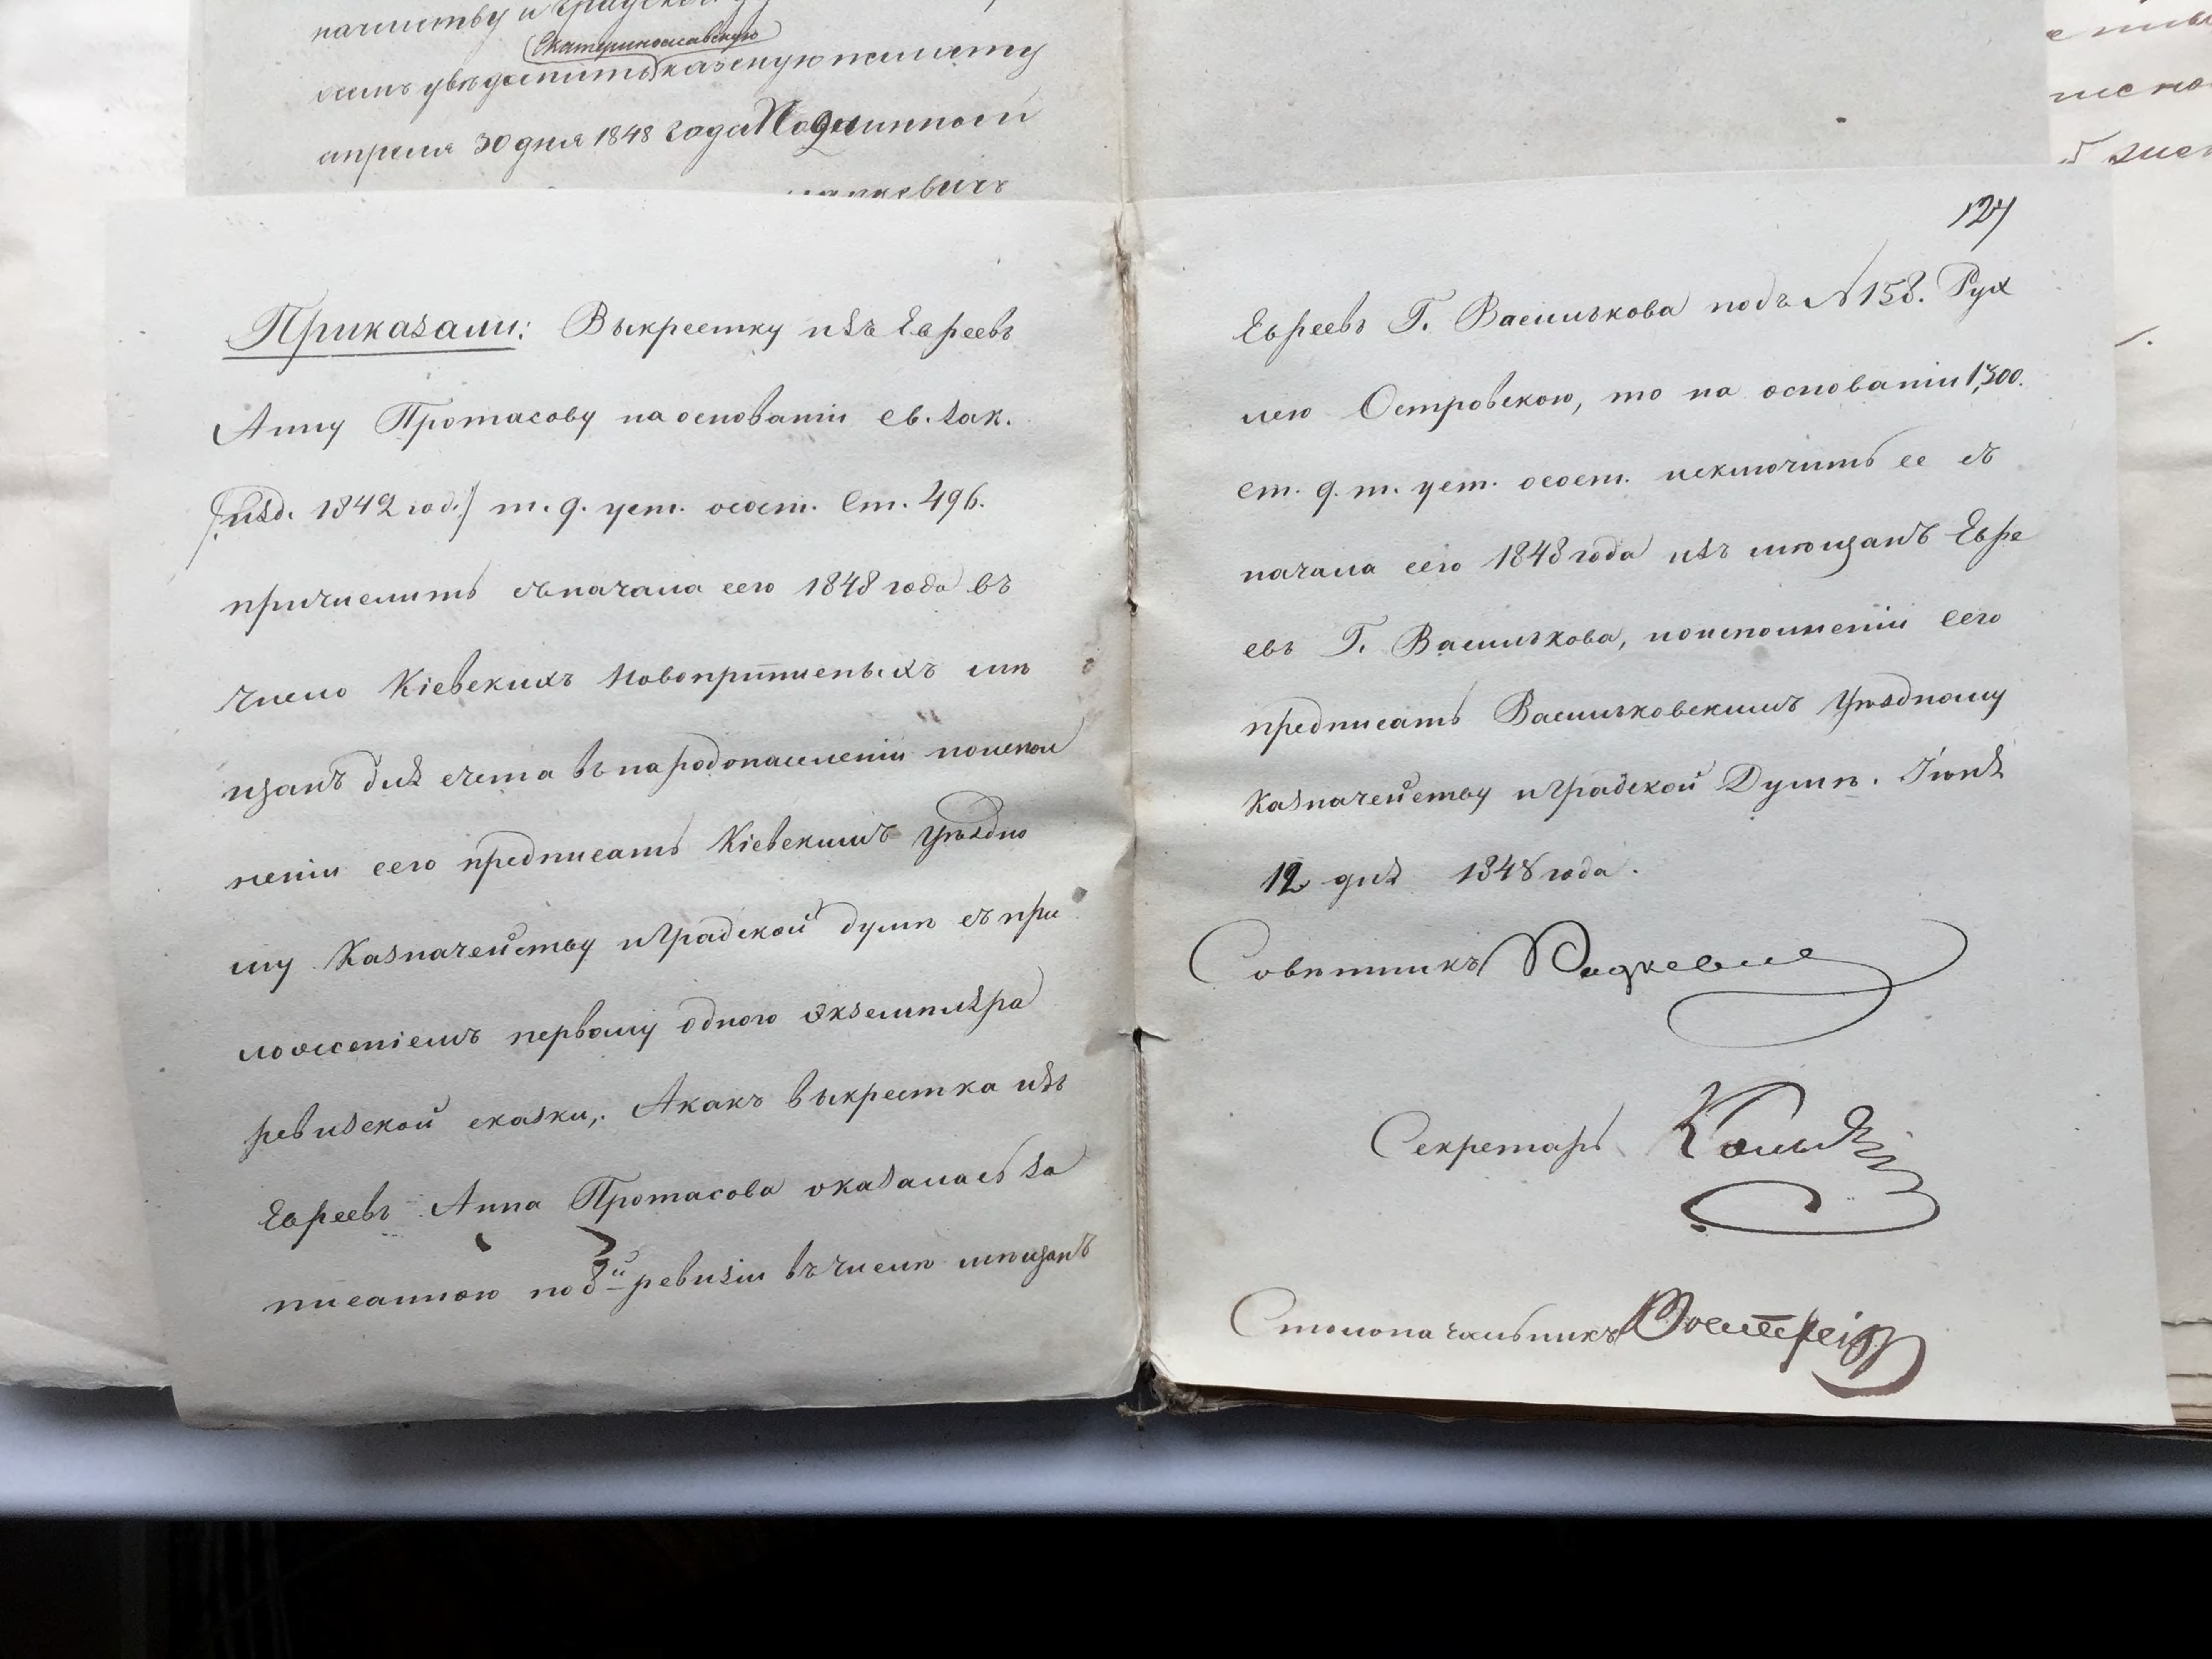 начеиству и градской
симъ увѣдомить (Екатеринославскую) казеную палату
апреля 30 дня 1848 года Подлинной
127
Приказали: Выкрестку изъ Евреевъ
Анну Протасову на основаніи св. зак.
/изд. 1842 год./ т. 9. уст. о сост. Ст. 496.
причислить съ начала сего 1848 года въ
число Кіевскихъ Новоприписныхъ мѣ
щанъ для счета въ народонаселеніи по испол
неніи сего предписать Кіевскимъ Уѣздно
му Казначейству и Градской думѣ съ при
ложеніемъ первому одного экземпляра
ревизской сказки, А какъ выкрестка изъ
Евреевъ Анна Протасова оказалась за
писанною по 8й ревизіи въ числѣ мѣщанъ
Евреевъ Г. Василькова подъ N 158. Рух
лею Островскою, то на основаніи 1,300.
ст. 9. т. уст. о сост. исключить ее съ
начала сего 1848 года изъ мѣщанъ Евре
евъ Г. Василькова, по исполненіи сего
предписать Васильковскимъ Уѣздному
Казначейству и Градской Думѣ. Іюня
12 дня 1848 года.
Совѣтникъ
Секретарь
Столоначальникъ